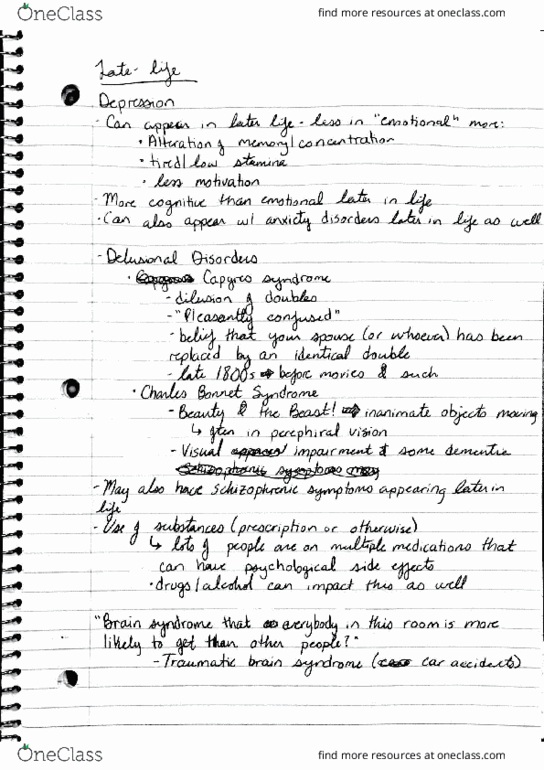 OneClass
find more resources at oneclass.com
Late-life
Depression
- Can appear in later life - less in "emotional" more:
• Alteration of memory/concentration
• tired/low stamina
• less motivation
- More cognitive than emotional later in life
- Can also appear w/ anxiety disorders later in life as well
- Delusional Disorders
• Capgres syndrome
- dilusion of doubles
- "Pleasantly confused"
- belief that your spouse (or whoever) has been
replaced by an identical double
- late 1800s → before movies & such
• Charles Bonnet Syndrome
- Beauty & the Beast! → inanimate objects moving
↳ often in perephiral vision
- Visual impairment & some dementia
schizophrenic symptoms may
- May also have schizophrenic symptoms appearing later in
life
- Use of substances (prescription or otherwise)
↳ lots of people are on multiple medications that
can have psychological side effects
• drugs/alcohol can impact this as well
"Brain syndrome that everybody in this room is more
likely to get than other people?"
- Traumatic brain syndrome (car accidents)
OneClass
find more resources at oneclass.com